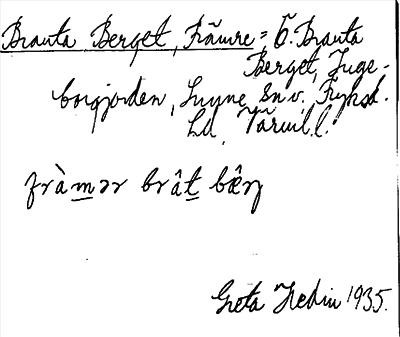 Branta Berget, Främre = Ö. Branta
Berget, Inge-
borgjorden, Lysne sn v. Fryksd.
Ld Värml.l.
fràmər brât bærj
Greta Hedin 1935.